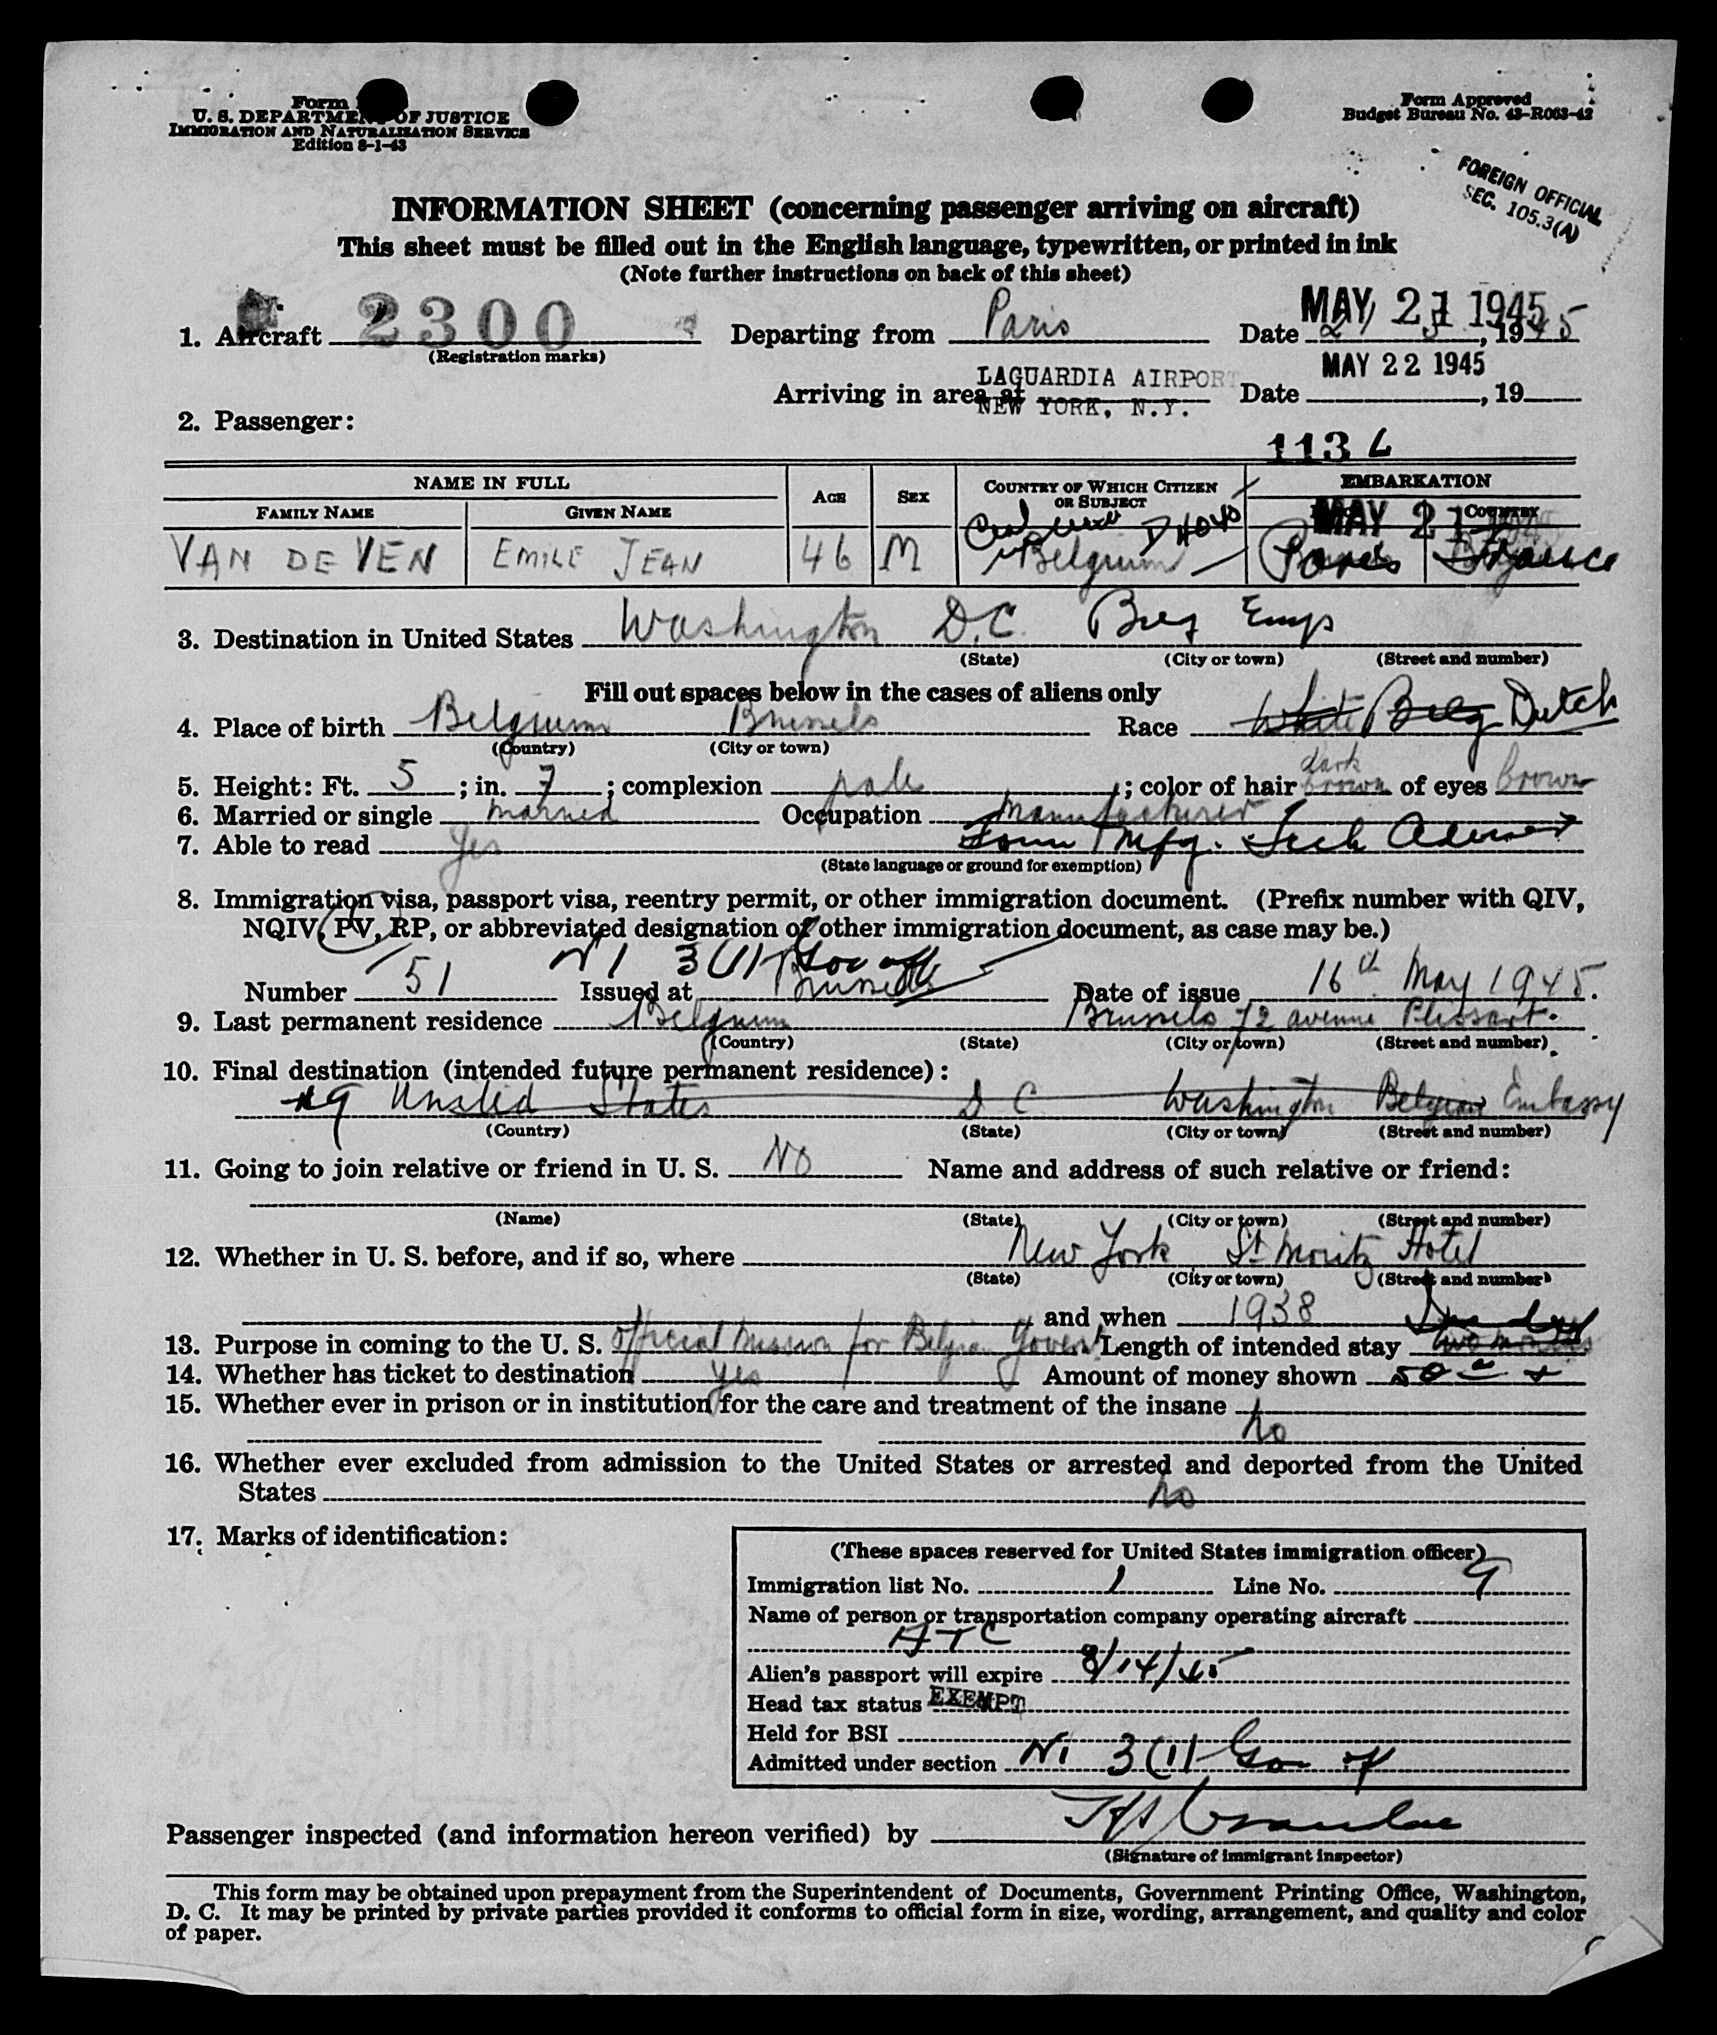 Form
U. S. DEPARTMENT OF JUSTICE
IMMIGRATION AND NATURALIZATION SERVICE
Edition 8-1-43
Form Approved
Budget Bureau No. 43-R063-42
FOREIGN OFFICIAL
SEC. 105.3(A)
INFORMATION SHEET (concerning passenger arriving on aircraft)
This sheet must be filled out in the English language, typewritten, or printed in ink
(Note further instructions on back of this sheet)
MAY 21 1945
1. Aircraft 2300 Departing from Paris Date 21 5, 1945
(Registration marks)
MAY 22 1945
LAGUARDIA AIRPORT
Arriving in area at Date , 19
NEW YORK, N.Y.
2. Passenger:
113 L
NAME IN FULL AGE SEX COUNTRY OF WHICH CITIZEN OR SUBJECT EMBARKATION
FAMILY NAME GIVEN NAME MAY 21 COUNTRY
VAN DE VEN EMILE JEAN 46 M Belgium Paris France
3. Destination in United States Washington D.C. Belg Emb
(State) (City or town) (Street and number)
Fill out spaces below in the cases of aliens only
4. Place of birth Belgium Brussels Race White Belg Dutch
(Country) (City or town)
dark
5. Height: Ft. 5; in. 7; complexion pale; color of hair brown of eyes brown
6. Married or single married Occupation Manufacturer
7. Able to read Yes Mfg. Tech
(State language or ground for exemption)
8. Immigration visa, passport visa, reentry permit, or other immigration document. (Prefix number with QIV,
NQIV, PV, RP, or abbreviated designation of other immigration document, as case may be.)
NI 3(1) Gov off
Number 51 Issued at Brussels Date of issue 16th May 1945.
9. Last permanent residence Belgium Brussels 72 avenue Plissart.
(Country) (State) (City or town) (Street and number)
10. Final destination (intended future permanent residence):
United States D C Washington Belgian Embassy
(Country) (State) (City or town) (Street and number)
11. Going to join relative or friend in U. S. No Name and address of such relative or friend:
(Name) (State) (City or town) (Street and number)
12. Whether in U. S. before, and if so, where New York St Moritz Hotel
(State) (City or town) (Street and number)
and when 1938
13. Purpose in coming to the U. S. Official mission for Belgian Govern. Length of intended stay two months
14. Whether has ticket to destination Yes Amount of money shown 50
15. Whether ever in prison or in institution for the care and treatment of the insane
No
16. Whether ever excluded from admission to the United States or arrested and deported from the United
States No
17. Marks of identification:
(These spaces reserved for United States immigration officer)
Immigration list No. 1 Line No. 9
Name of person or transportation company operating aircraft
ATC
Alien's passport will expire 8/14/45
Head tax status EXEMPT
Held for BSI
Admitted under section NI 3(1) Gov of
Passenger inspected (and information hereon verified) by
(Signature of immigrant inspector)
This form may be obtained upon prepayment from the Superintendent of Documents, Government Printing Office, Washington,
D. C. It may be printed by private parties provided it conforms to official form in size, wording, arrangement, and quality and color
of paper.